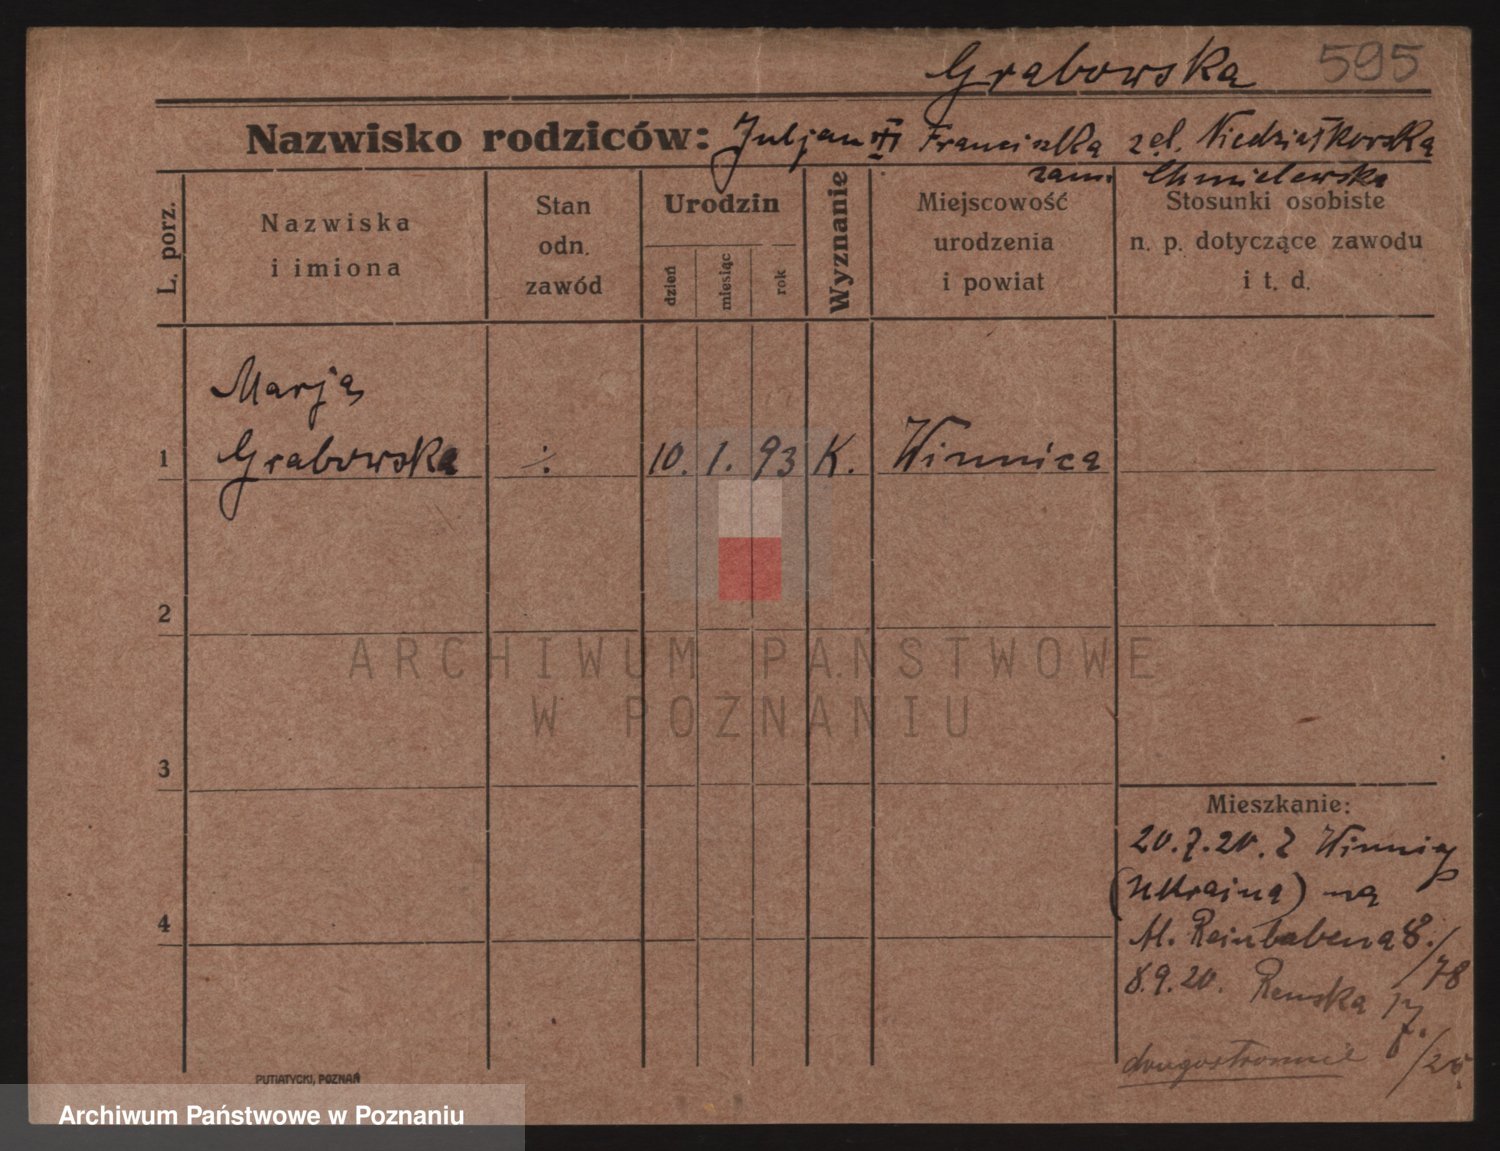 Grabowska 595
Nazwisko rodziców: Juljan Franciszka zd. Niedziałkowska
zam. Chmielewska
L. porz.
Nazwiska
i imiona
Stan
odn.
zawód
Urodzin
dzień
miesiąc
rok
Wyznanie
Miejscowość
urodzenia
i powiat
Stosunki osobiste
n. p. dotyczące zawodu
i t. d.
Marja
1 Grabowska ·/. 10. 1. 93 K. Winnica
2
ARCHIWUM PAŃSTWOWE
W POZNANIU
3
Mieszkanie:
20.7.20. z Winnicy
(Ukraina) na
Reinbabena 8./78
4
8.9.20. Remska 17./20.
drugostronnie
PUTIATYCKI, POZNAŃ
Archiwum Państwowe w Poznaniu